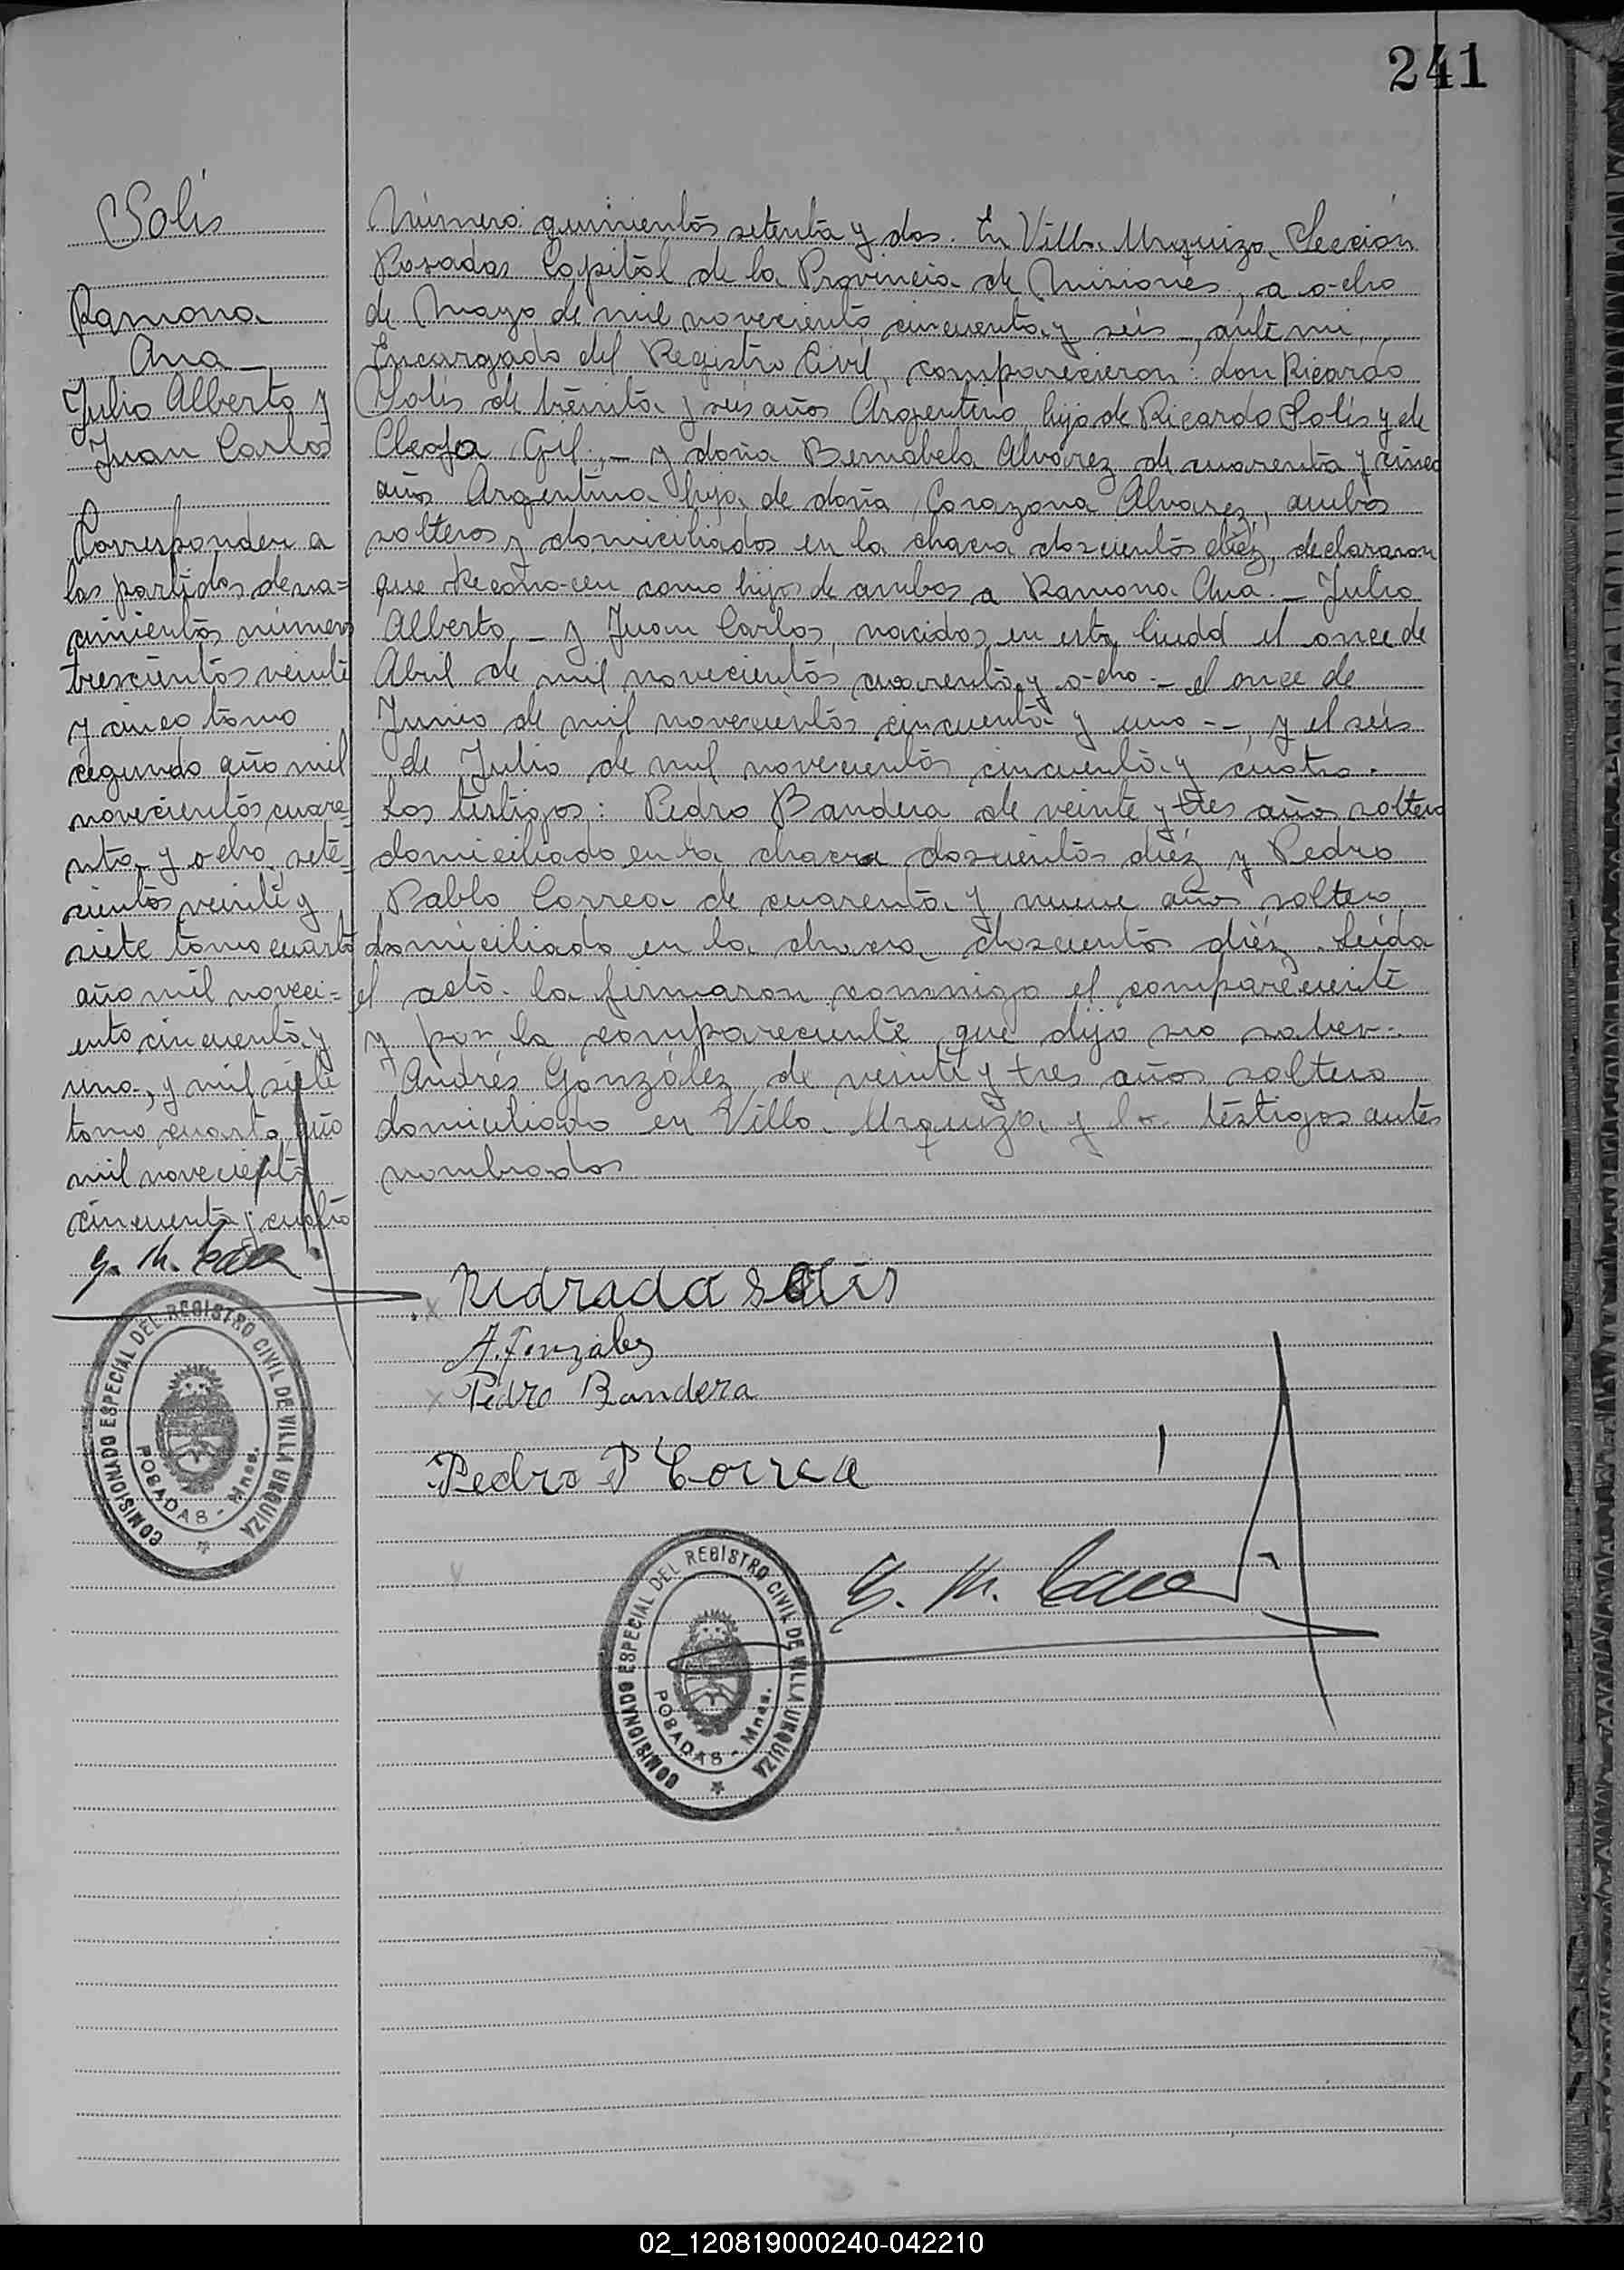 241
Solís
Ramona
Ana
Julio Alberto y
Juan Carlos
Corresponden a
las partidas de na=
cimientos número
trescientos veinte
y cinco tomo
segundo año mil
novecientos cuare=
nta y ocho, sete=
cientos veinte y
siete tomo cuarto
año mil noveci=
ento cincuenta y
uno, y mil siete
tomo cuarto año
mil noveciento
cincuenta y cuatro
Número quinientos setenta y dos. En Villa Urquiza, Sección
Posadas Capital de la Provincia de Misiones, a ocho
de Mayo de mil noveciento cincuenta y seis, ante mi,
Encargado del Registro Civil, comparecieron: don Ricardo
Solís de treinta y seis años Argentino hijo de Ricardo Solís y de
Cleofa Gil.- y doña Bernabela Alvarez de cuarenta y cinco
años Argentina hija de doña Corazona Alvarez, ambos
solteros y domiciliados en la chacra doscientos diez, declararon
que Reconocen como hijos de ambos a Ramona Ana.- Julio
Alberto,- y Juan Carlos, nacidos en esta Ciudd el once de
Abril de mil novecientos cuarenta y ocho.- el once de
Junio de mil novecientos cincuenta y uno--, y el seis
de Julio de mil novecientos cincuenta y cuatro.
Los testigos: Pedro Bandera de veinte y tres años soltero
domiciliado en la chacra doscientos diéz y Pedro
Pablo Correa de cuarenta y nueve años soltero
domiciliado en la chacra doscientos diéz. Leida
el acto. la firmaron conmigo el compareciente
y por la compareciente que dijo no saber.
Andrés González de veinte y tres años soltero
domiciliado en Villa Urquiza y los testigos antes
nombrados
Solis
A. Gonzales
Pedro Bandera
Pedro P Correa
G. M.
COMISIONADO ESPECIAL DEL REGISTRO CIVIL DE VILLA URQUIZA
POSADAS - Mnes.
COMISIONADO ESPECIAL DEL REGISTRO CIVIL DE VILLA URQUIZA
POSADAS - Mnes.
02_120819000240-042210